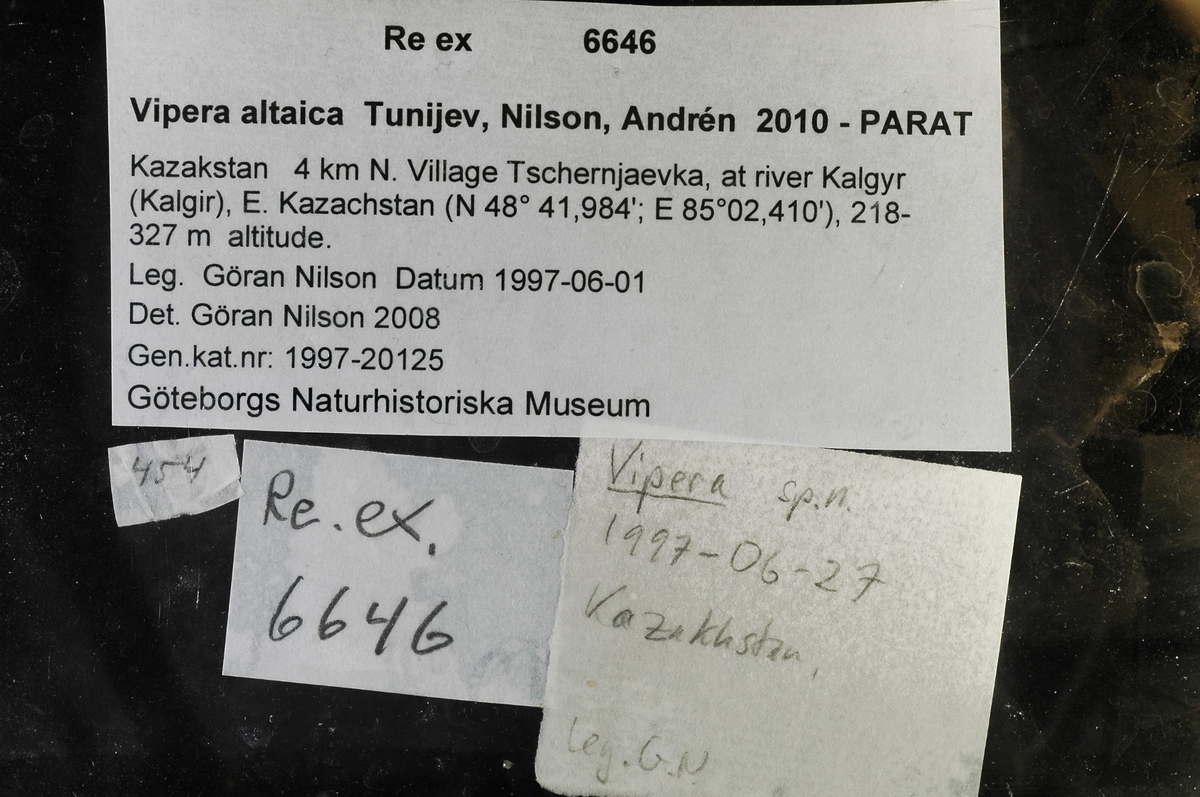 Re ex 6646
Vipera altaica Tunijev, Nilson, Andrén 2010 - PARAT
Kazakstan 4 km N. Village Tschernjaevka, at river Kalgyr
(Kalgir), E. Kazachstan (N 48° 41,984'; E 85°02,410'), 218-
327 m altitude.
Leg. Göran Nilson Datum 1997-06-01
Det. Göran Nilson 2008
Gen.kat.nr: 1997-20125
Göteborgs Naturhistoriska Museum
454
Re.ex.
6646
Vipera sp.n.
1997-06-27
Kazakhstan.
Leg. G.N